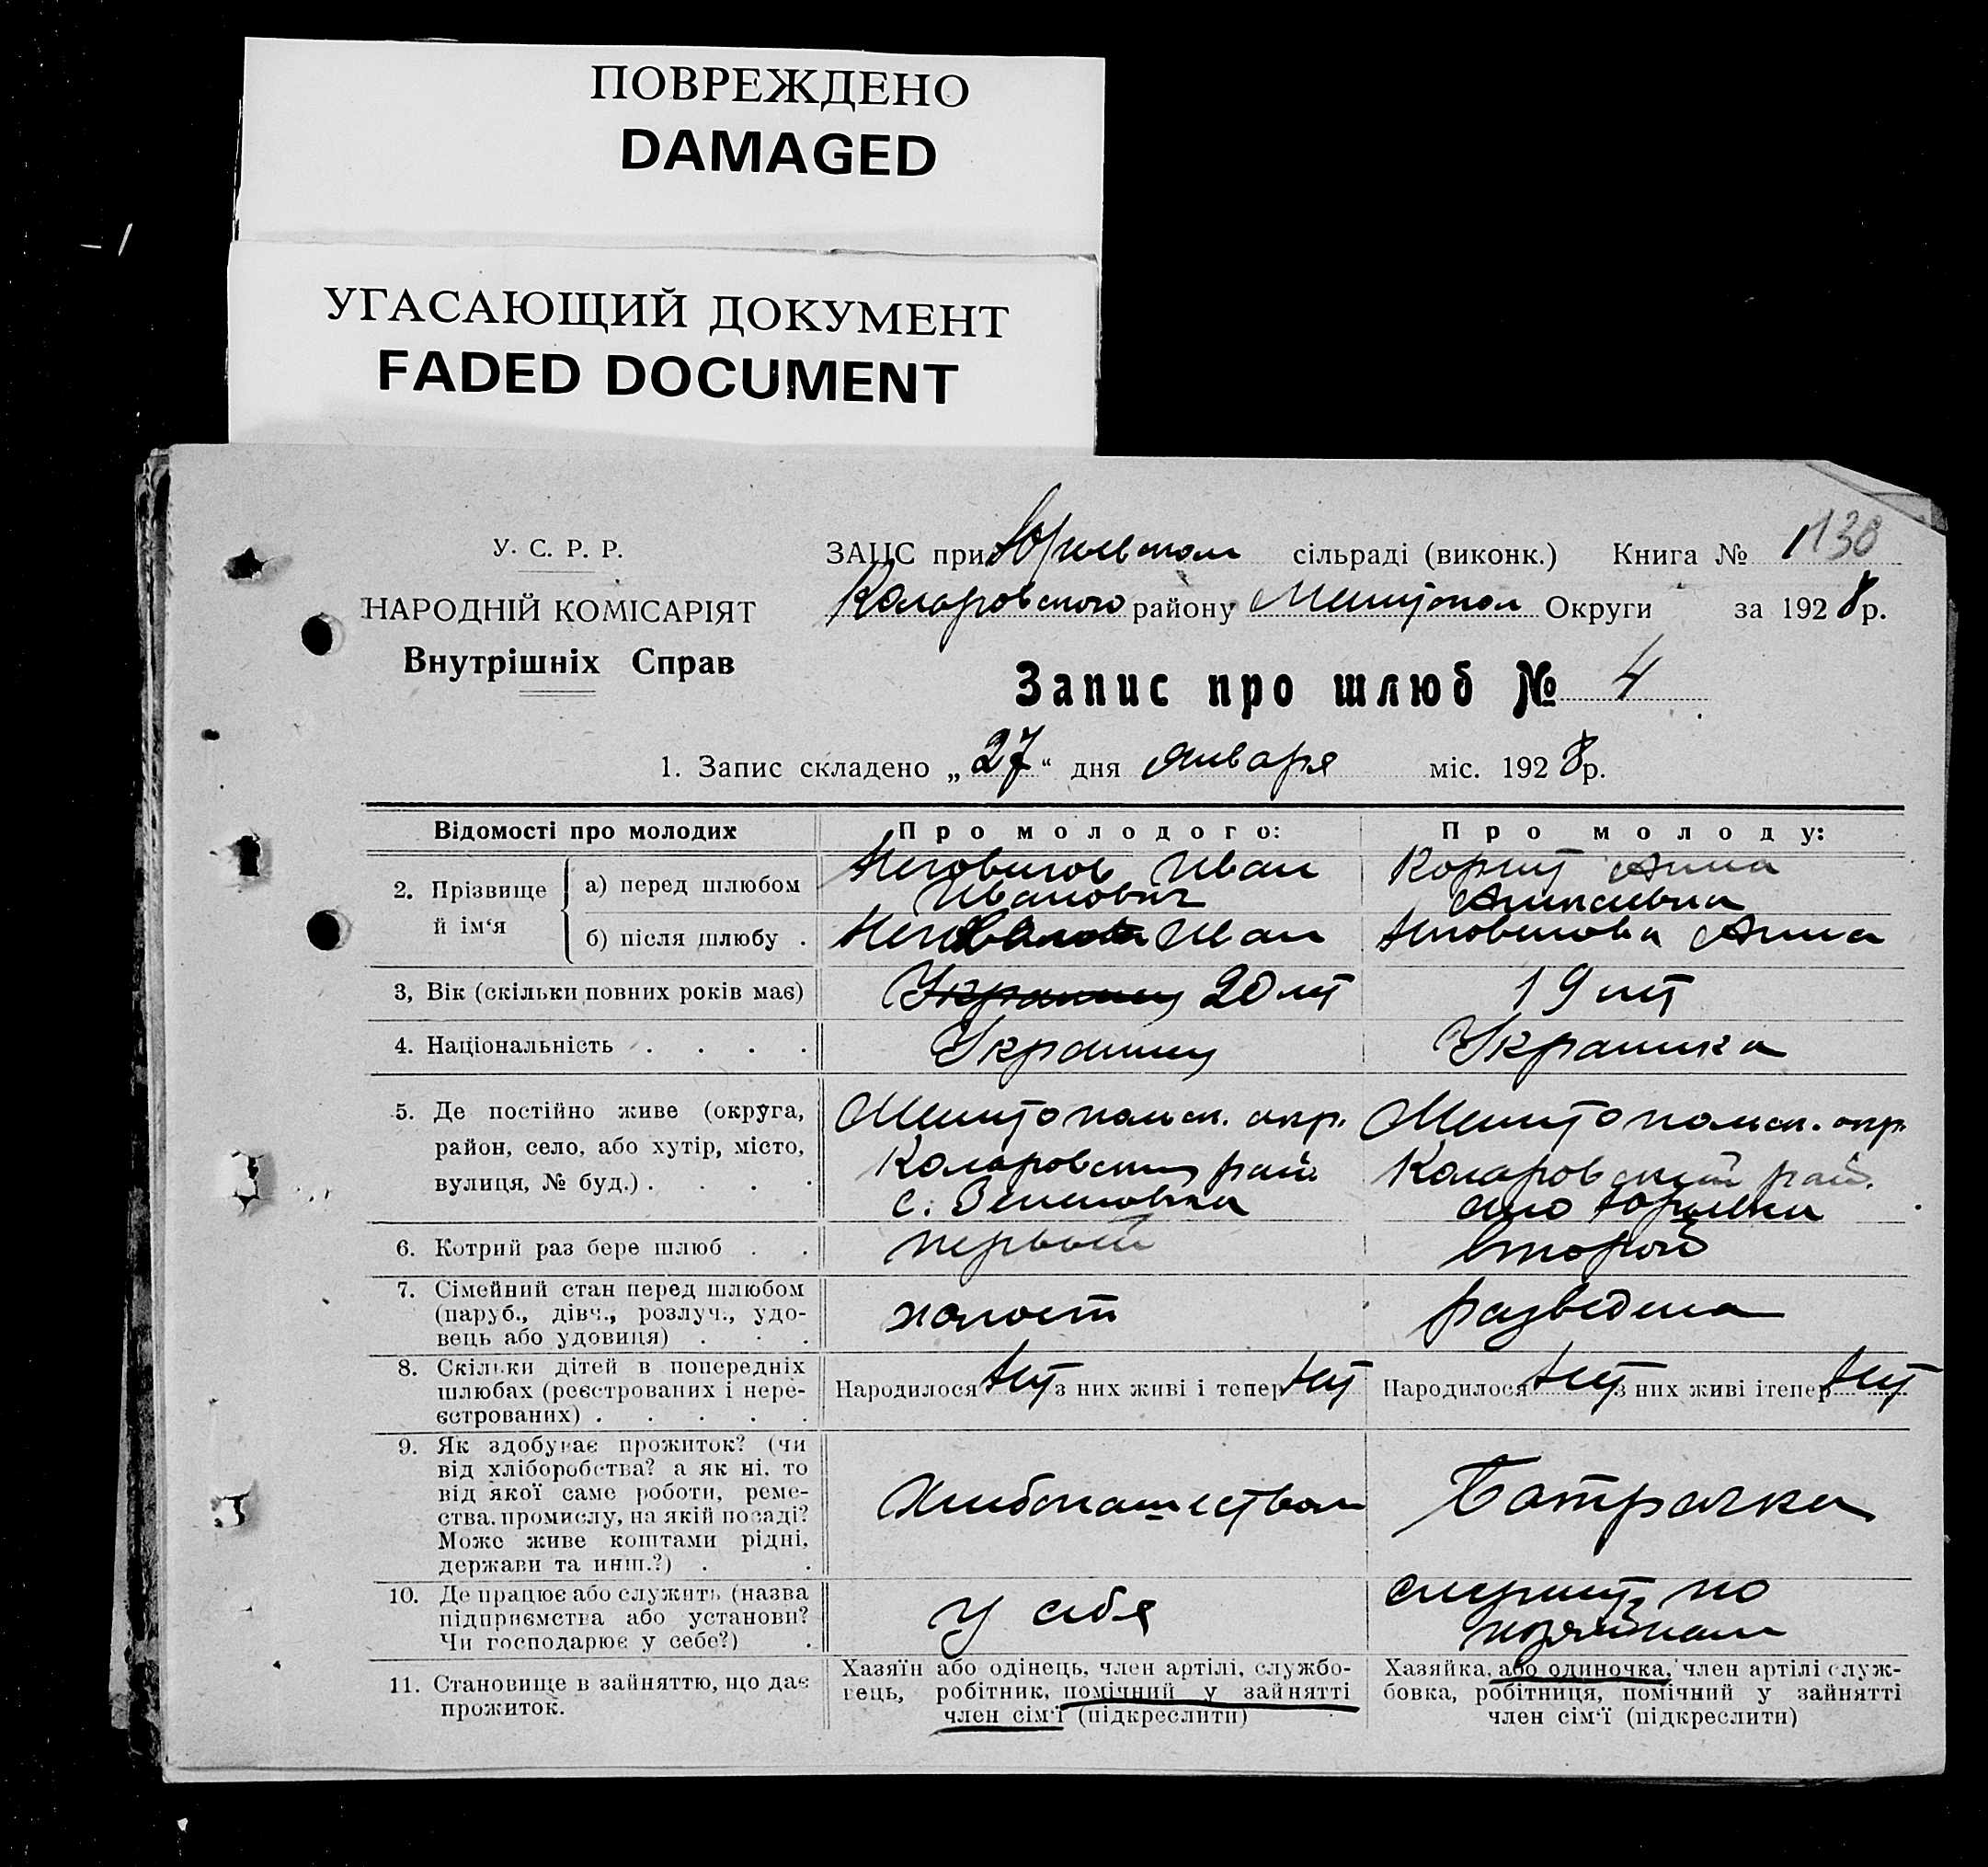 ПОВРЕЖДЕНО
DAMAGED
УГАСАЮЩИЙ ДОКУМЕНТ
FADED DOCUMENT
У. С. Р. Р.
НАРОДНІЙ КОМІСАРІЯТ
Внутрішніх Справ
ЗАЦС при Юрьевском сільраді (виконк.) Книга № 1 138
Коларовского району Мелитопол Округи за 1928 р.
Запис про шлюб № 4
1. Запис складено „27“ дня января міс. 1928 р.
Відомості про молодих
Про молодого:
Про молоду:
2. Прізвище й ім‘я
а) перед шлюбом
Иван
Иванович
Анна
б) після шлюбу .
Иван
Анна
3, Вік (скільки повних років має)
Украинец 20 лет
19 лет
4. Національність . . . .
Украинец
Украинка
5. Де постійно живе (округа,
район, село, або хутір, місто,
вулиця, № буд.) . . . .
Мелитопольск. окр.
Коларовский рай.
с. Зеленовка
Мелитопольск. окр.
Коларовский рай.
село Юрьевка
6. Котрий раз бере шлюб . .
первый
второй
7. Сімейний стан перед шлюбом
(паруб., дівч., розлуч., удо-
вець або удовиця) . . .
холост
разведена
8. Скільки дітей в попередніх
шлюбах (реєстрованих і нере-
єстрованих) . . . . .
Народилося нет з них живі і тепер нет
Народилося нет з них живі і тепер нет
9. Як здобуває прожиток? (чи
від хліборобства? а як ні, то
від якої саме роботи, реме-
ства, промислу, на якій посаді?
Може живе коштами рідні,
держави та инш.?) . .
Хлебопашеством
Батрачка
10. Де працює або служить (назва
підприємства або установи?
Чи господарює у себе?) .
у себя
служит по
хозяйнам
11. Становище в зайняттю, що дає
прожиток.
Хазяїн або одінець, член артілі, службо-
вець, робітник, помічний у зайнятті
член сім‘ї (підкреслити)
Хазяйка, або одиночка, член артілі служ-
бовка, робітниця, помічний у зайнятті
член сім‘ї (підкреслити)